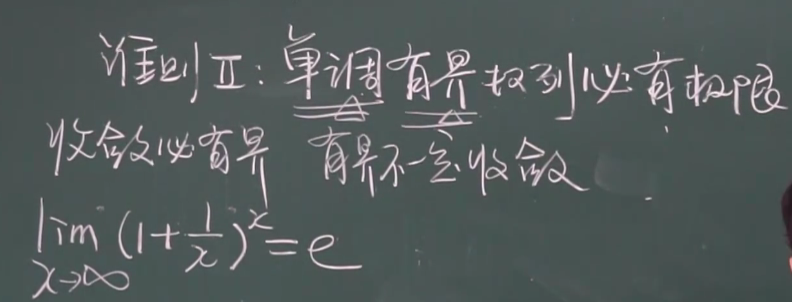 准则Ⅱ:单调有界数列必有极限
收敛必有界 有界不一定收敛
lim x→∞ (1+1/x)^x=e